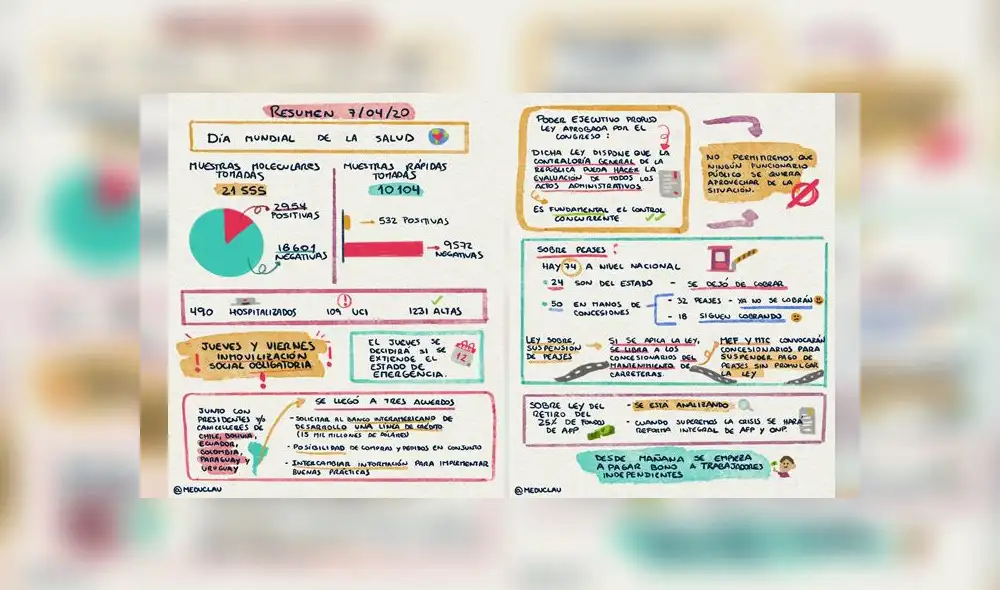 RESUMEN 7/04/20
DÍA MUNDIAL DE LA SALUD
MUESTRAS MOLECULARES
TOMADAS
21 555
2954
POSITIVAS
18601
NEGATIVAS
MUESTRAS RÁPIDAS
TOMADAS
10 104
532 POSITIVAS
9572
NEGATIVAS
490 HOSPITALIZADOS 109 UCI 1231 ALTAS
JUEVES Y VIERNES
INMOVILIZACIÓN
SOCIAL OBLIGATORIA
EL JUEVES SE
DECIDIRÁ SI SE
EXTIENDE EL
ESTADO DE
EMERGENCIA.
12
JUNTO CON
PRESIDENTES Y/O
CANCILLERES DE
CHILE, BOLIVIA,
ECUADOR,
COLOMBIA,
PARAGUAY Y
URUGUAY
SE LLEGÓ A TRES ACUERDOS
- SOLICITAR AL BANCO INTERAMERICANO DE
DESARROLLO UNA LÍNEA DE CRÉDITO
(15 MIL MILLONES DE DÓLARES)
- POSIBILIDAD DE COMPRAS Y PEDIDOS EN CONJUNTO
- INTERCAMBIAR INFORMACIÓN PARA IMPLEMENTAR
BUENAS PRÁCTICAS
@MEDUCLAU
PODER EJECUTIVO PROMULGÓ
LEY APROBADA POR EL
CONGRESO:
DICHA LEY DISPONE QUE LA
CONTRALORÍA GENERAL DE LA
REPÚBLICA PUEDA HACER LA
EVALUACIÓN DE TODOS LOS
ACTOS ADMINISTRATIVOS
ES FUNDAMENTAL EL CONTROL
CONCURRENTE
NO PERMITIREMOS QUE
NINGÚN FUNCIONARIO
PÚBLICO SE QUIERA
APROVECHAR DE LA
SITUACIÓN.
SOBRE PEAJES:
HAY 74 A NIVEL NACIONAL
24 SON DEL ESTADO - SE DEJÓ DE COBRAR
50 EN MANOS DE
CONCESIONES
- 32 PEAJES - YA NO SE COBRAN
- 18 SIGUEN COBRANDO
LEY SOBRE
SUSPENSIÓN
DE PEAJES
SI SE APLICA LA LEY,
SE LIBRA A LOS
CONCESIONARIOS DEL
MANTENIMIENTO DE
CARRETERAS.
MEF Y MTC CONVOCARÁN
CONCESIONARIOS PARA
SUSPENDER PAGO DE
PEAJES SIN PROMULGAR
LA LEY
SOBRE LEY DEL
RETIRO DEL
25% DE FONDO
DE AFP
- SE ESTÁ ANALIZANDO
- CUANDO SUPEREMOS LA CRISIS SE HARÁ
REFORMA INTEGRAL DE AFP Y ONP.
DESDE MAÑANA SE EMPIEZA
A PAGAR BONO A TRABAJADORES
INDEPENDIENTES
@MEDUCLAU